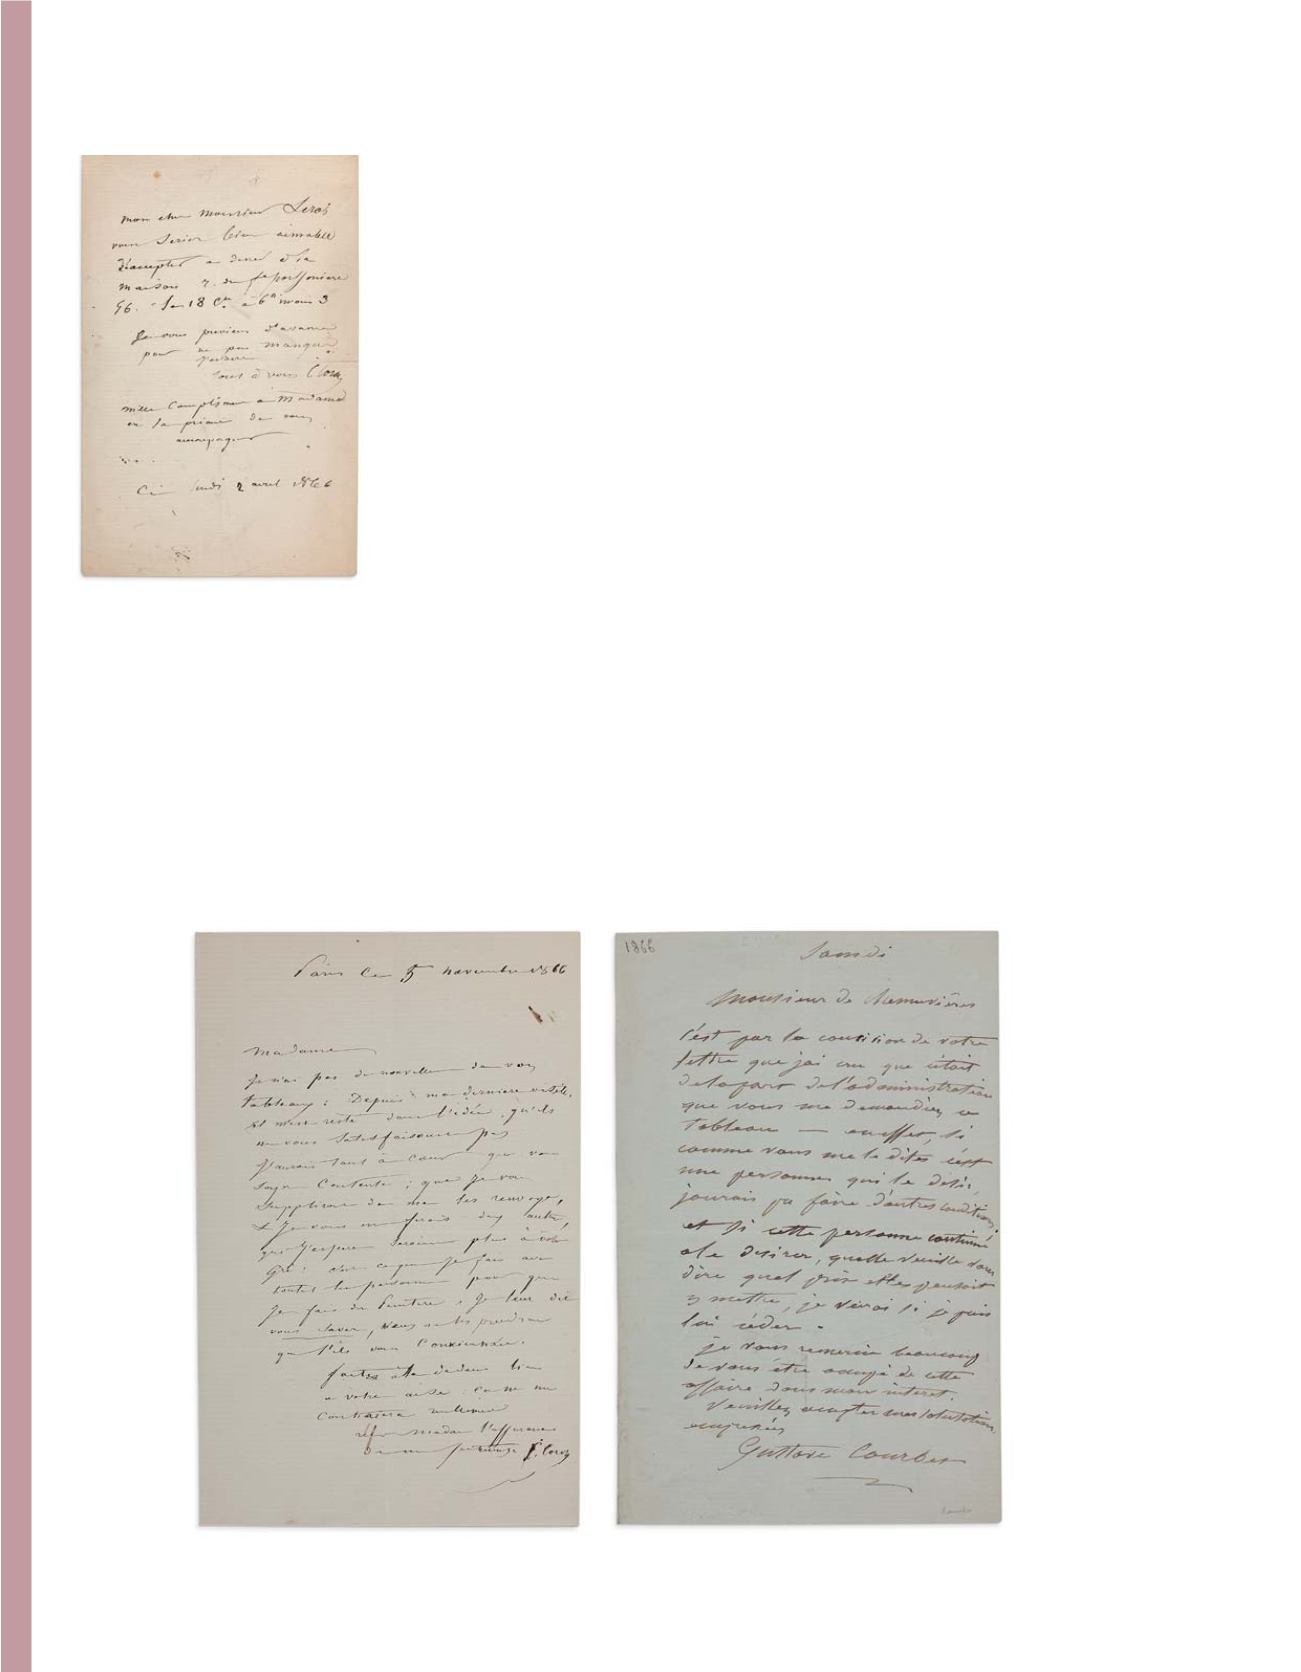 mon cher monsieur
vous bien aimable
d'accepter a diner à la
maison r. du fg poissoniere
56. Le 18 Ct à 6h moins 3
Je vous previens d'avance
pour ne pas manquer
tout à vous C. Corot
mille Compliments à Madame
et la priant de vous
accompagner
Ce lundi 2 avril 1866
Paris Ce 5 novembre 1866
Madame
Je n'ai pas de nouvelle de vos
tableaux : Depuis ma derniere visite,
il m'est resté dans l'idée, qu'ils
ne vous satisfaisaient pas
J'aurais tant à Coeur que vous
soyez Contente ; que Je vous
supplierai de me les renvoyer,
& Je vous en ferais des autres,
que J'espere seraient plus à votre
Gré : c'est ce que Je fais avec
toutes les personnes pour qui
Je fais de Peinture ; Je leur dit
vous savez, vous ne les prendrez
que s'ils vous Conviennent.
faites dedans bien
a votre aise : ça ne me
Contrariera nullement
Madame l'assurance
de mes C. Corot
1866
Samedi
Monsieur de
C'est par la de votre
lettre que j'ai cru que c'était
de la part de l'administration
que vous me demandiez ce
tableau — en effet, si
comme vous me le dites c'est
une personne qui le désire,
j'aurais pu faire d'autres conditions.
et si cette personne continue
a le desirer, quelle veuille vous
dire quel prix elle pensait
y mettre, je verai si je puis
lui céder.
je vous remercie beaucoup
de vous être occupé de cette
affaire dans mon interet.
Veuillez accepter mes salutations
empressées
Gustave Courbet